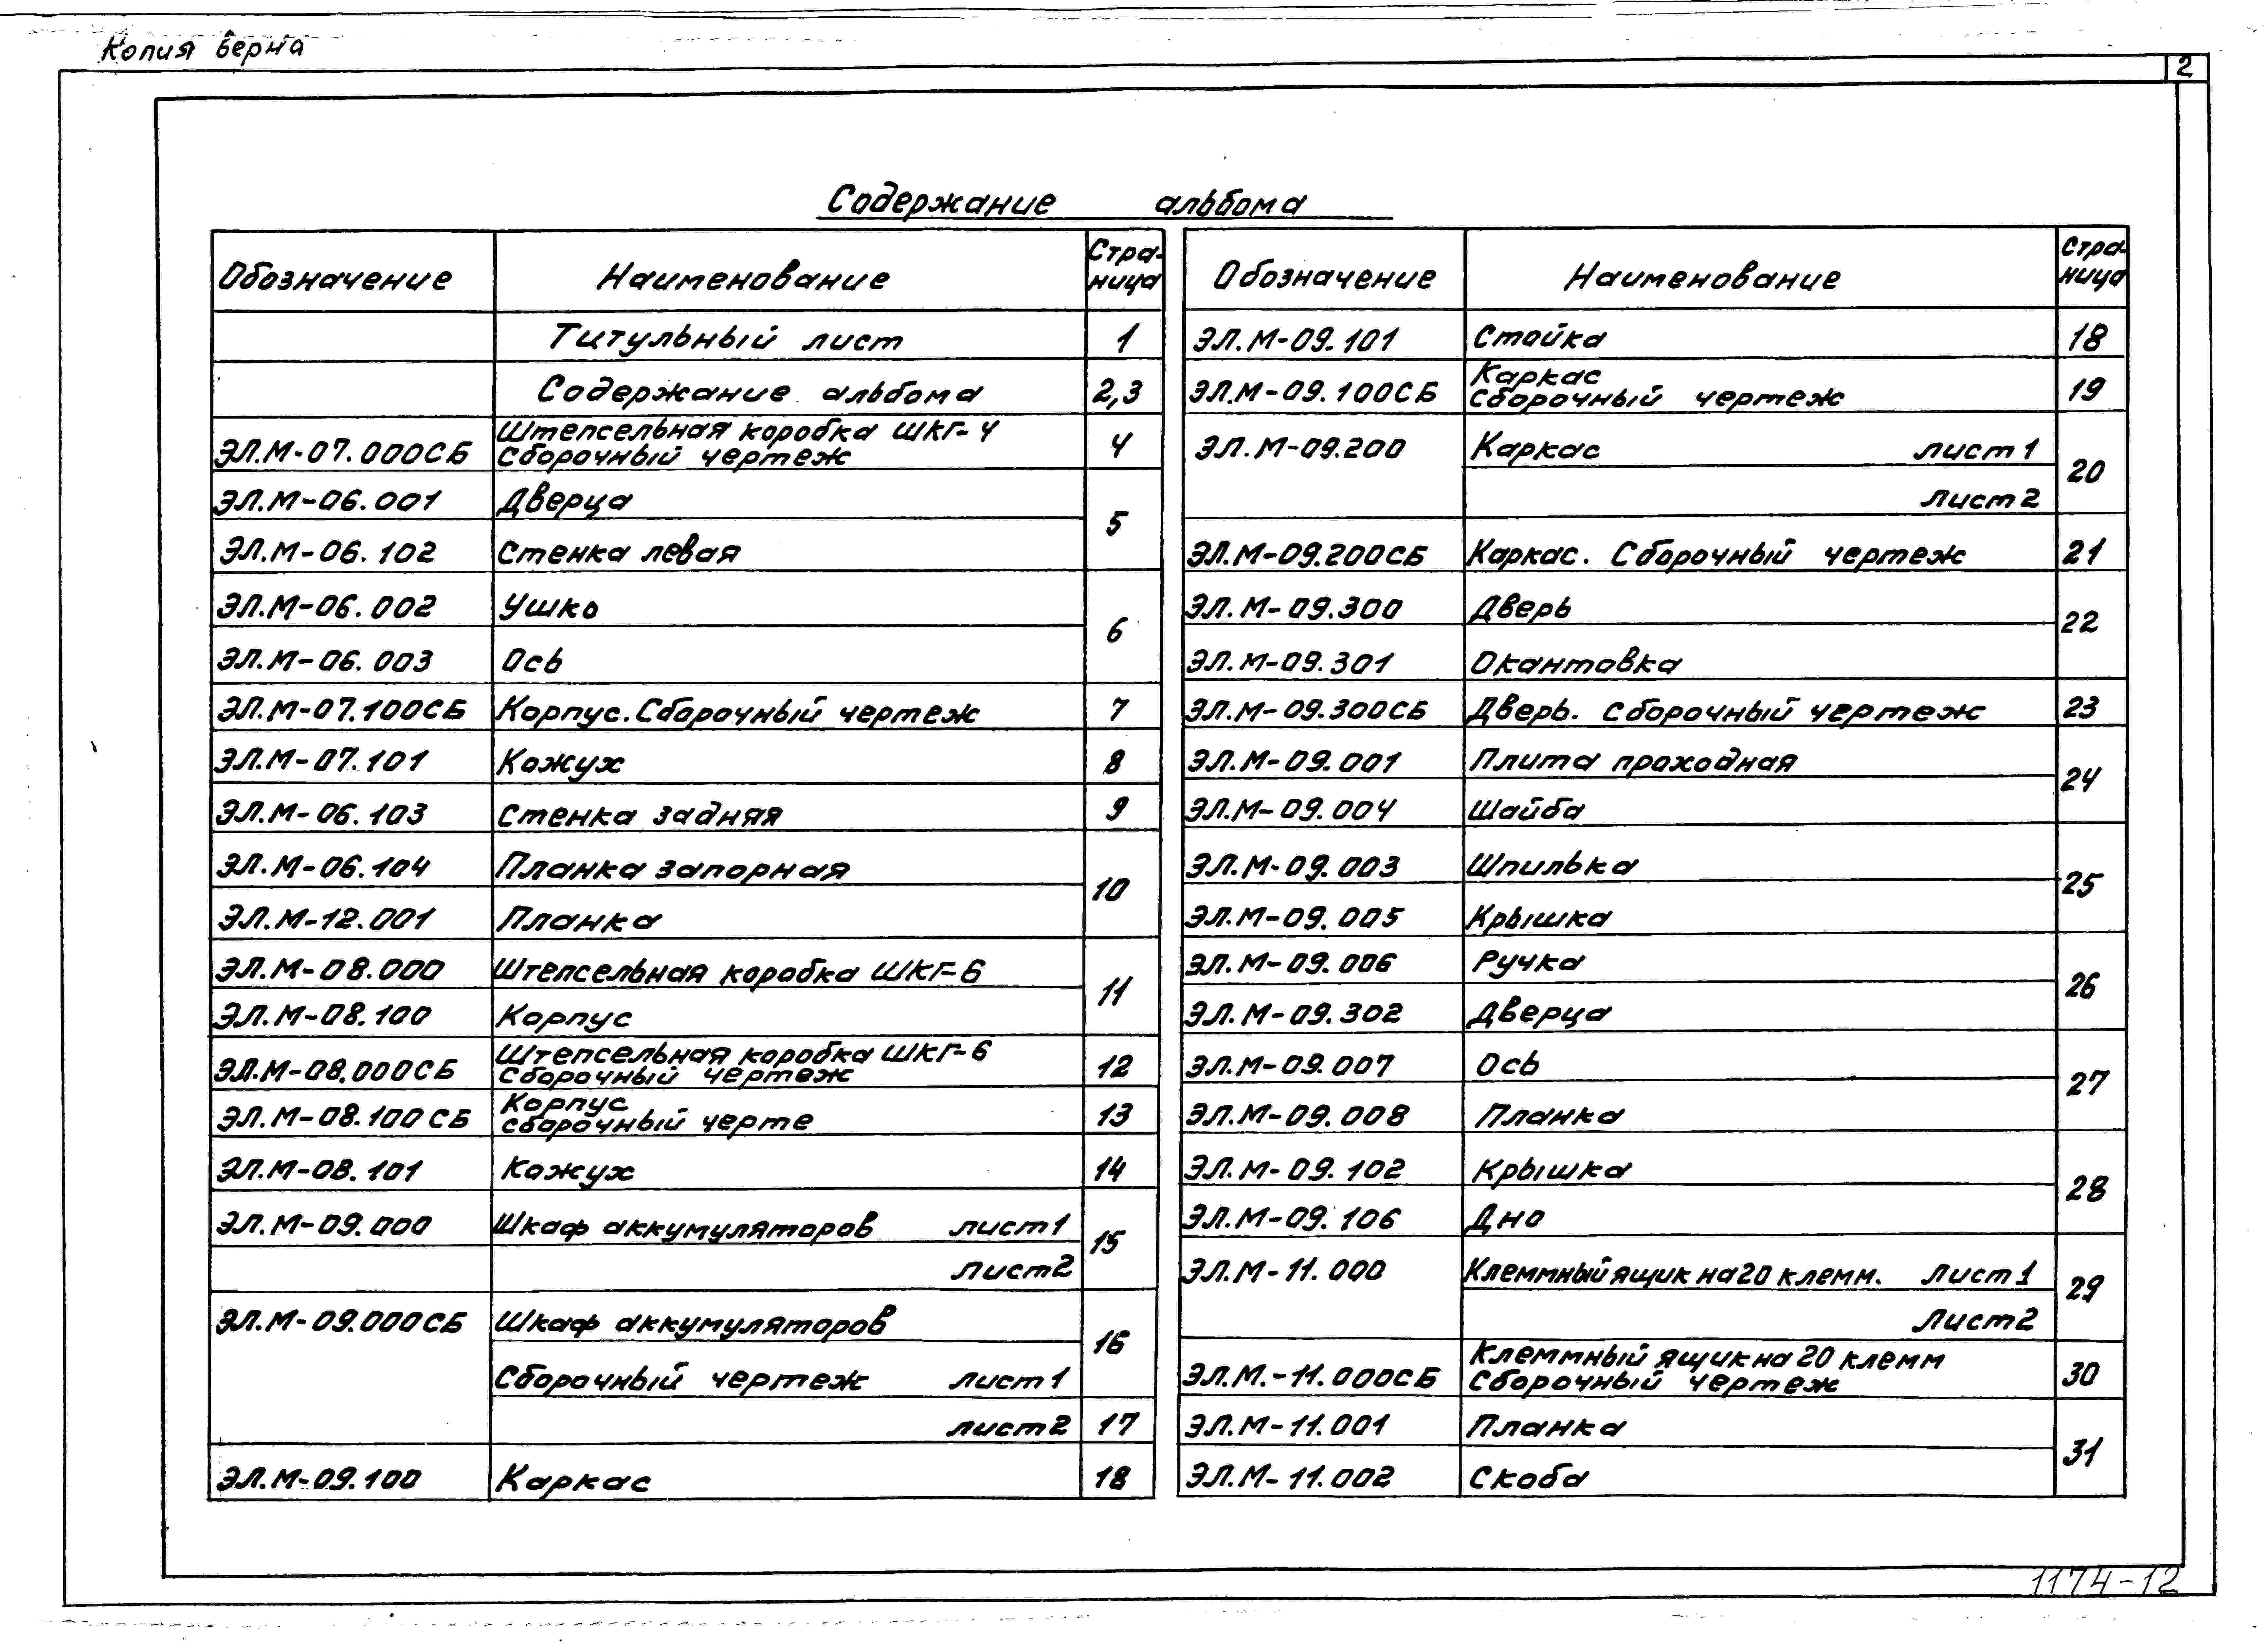 Копия верна
2
Содержание альбома
Обозначение Наименование Стра-
ница
Титульный лист 1
Содержание альбома 2,3
ЭЛ.М-07.000СБ Штепсельная коробка ШКГ-4
Сборочный чертеж 4
ЭЛ.М-06.001 Дверца
5
ЭЛ.М-06.102 Стенка левая
ЭЛ.М-06.002 Ушко
6
ЭЛ.М-06.003 Ось
ЭЛ.М-07.100СБ Корпус. Сборочный чертеж 7
ЭЛ.М-07.101 Кожух 8
ЭЛ.М-06.103 Стенка задняя 9
ЭЛ.М-06.104 Планка запорная
10
ЭЛ.М-12.001 Планка
ЭЛ.М-08.000 Штепсельная коробка ШКГ-6
11
ЭЛ.М-08.100 Корпус
ЭЛ.М-08.000СБ Штепсельная коробка ШКГ-6
Сборочный чертеж 12
ЭЛ.М-08.100СБ Корпус
сборочный черте 13
ЭЛ.М-08.101 Кожух 14
ЭЛ.М-09.000 Шкаф аккумуляторов лист 1
15
Лист 2
ЭЛ.М-09.000СБ Шкаф аккумуляторов
16
Сборочный чертеж лист 1
лист 2 17
ЭЛ.М-09.100 Каркас 18
Обозначение Наименование Стра-
ница
ЭЛ.М-09.101 Стойка 18
ЭЛ.М-09.100СБ Каркас
Сборочный чертеж 19
ЭЛ.М-09.200 Каркас лист 1
20
Лист 2
ЭЛ.М-09.200СБ Каркас. Сборочный чертеж 21
ЭЛ.М-09.300 Дверь
22
ЭЛ.М-09.301 Окантовка
ЭЛ.М-09.300СБ Дверь. Сборочный чертеж 23
ЭЛ.М-09.001 Плита проходная
24
ЭЛ.М-09.004 Шайба
ЭЛ.М-09.003 Шпилька
25
ЭЛ.М-09.005 Крышка
ЭЛ.М-09.006 Ручка
26
ЭЛ.М-09.302 Дверца
ЭЛ.М-09.007 Ось
27
ЭЛ.М-09.008 Планка
ЭЛ.М-09.102 Крышка
28
ЭЛ.М-09.106 Дно
ЭЛ.М-11.000 Клеммный ящик на 20 клемм. Лист 1
29
Лист 2
ЭЛ.М.-11.000СБ Клеммный ящик на 20 клемм
Сборочный чертеж 30
ЭЛ.М-11.001 Планка
31
ЭЛ.М-11.002 Скоба
1174-12